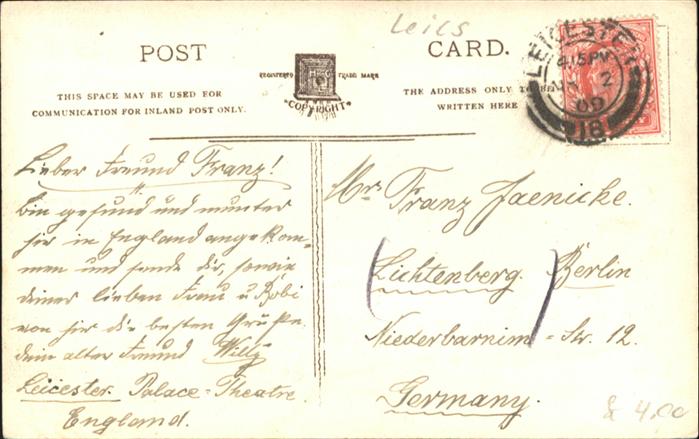 Leics
POST CARD.
REGISTERED TRADE MARK
COPYRIGHT
THIS SPACE MAY BE USED FOR
COMMUNICATION FOR INLAND POST ONLY.
THE ADDRESS ONLY TO BE
WRITTEN HERE
LEICESTER
4.15 PM
2
09
18
Lieber Freund Franz!
bin gesund und munter
hir in England angekom-
men und sende dir, sowie
deiner lieben Frau u Bobi
von hir die besten Grüße.
dein alter Freund Willy
Leicester. Palace-Theatre
England.
Mr Franz Jaenicke.
(Lichtenberg) Berlin
Niederbarnim-Str. 12.
Germany.
4.00